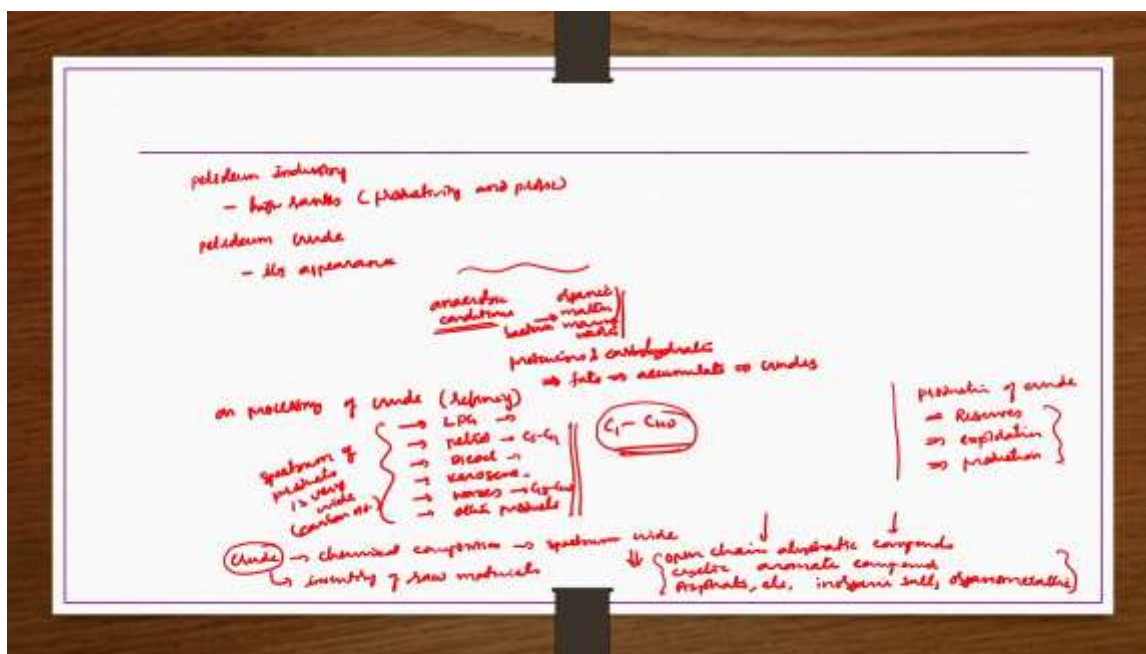 petroleum Industry
- high ranks (productivity and
petroleum crude
- its appearance
anaerobic conditions → organic matter
bacteria marine
proteins & carbohydrates
⇒ fats → accumulate ⇒ crudes
on processing of crude (refinery)
spectrum of products is very wide (carbon no.)
→ LPG →
→ petrol → C5-
→ Diesel →
→ kerosene -
→ waxes →
→ other products
C1 - C40
production of crude
⇒ Reserves
⇒ exploration
⇒ production
crude → chemical composition → spectrum wide
↳ inventory of raw materials
open chain aliphatic compounds
cyclic aromatic compound
Asphalts, etc, inorganic salts, organometallic